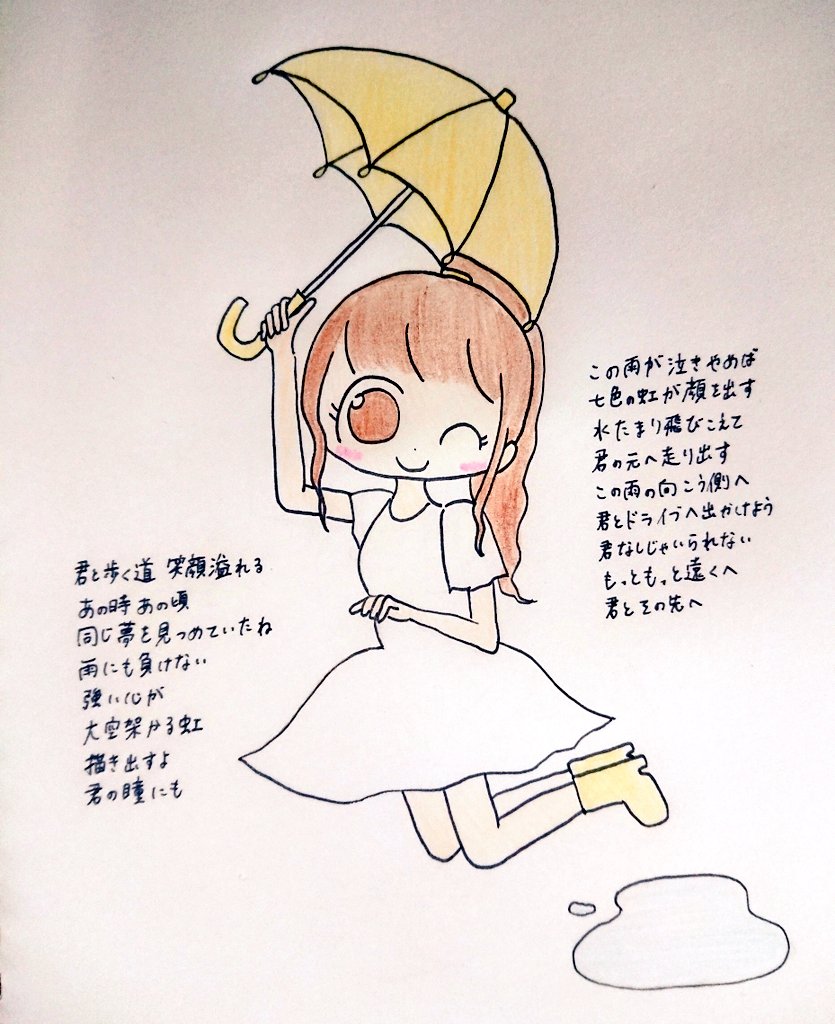 この雨が泣きやめば
七色の虹が顔を出す
水たまり飛びこえて
君の元へ走り出す
この雨の向こう側へ
君とドライブへ出かけよう
君なしじゃいられない
もっともっと遠くへ
君とその先へ
君と歩く道 笑顔溢れる
あの時あの頃
同じ夢を見つめていたね
雨にも負けない
強い心が
大空架かる虹
描き出すよ
君の瞳にも